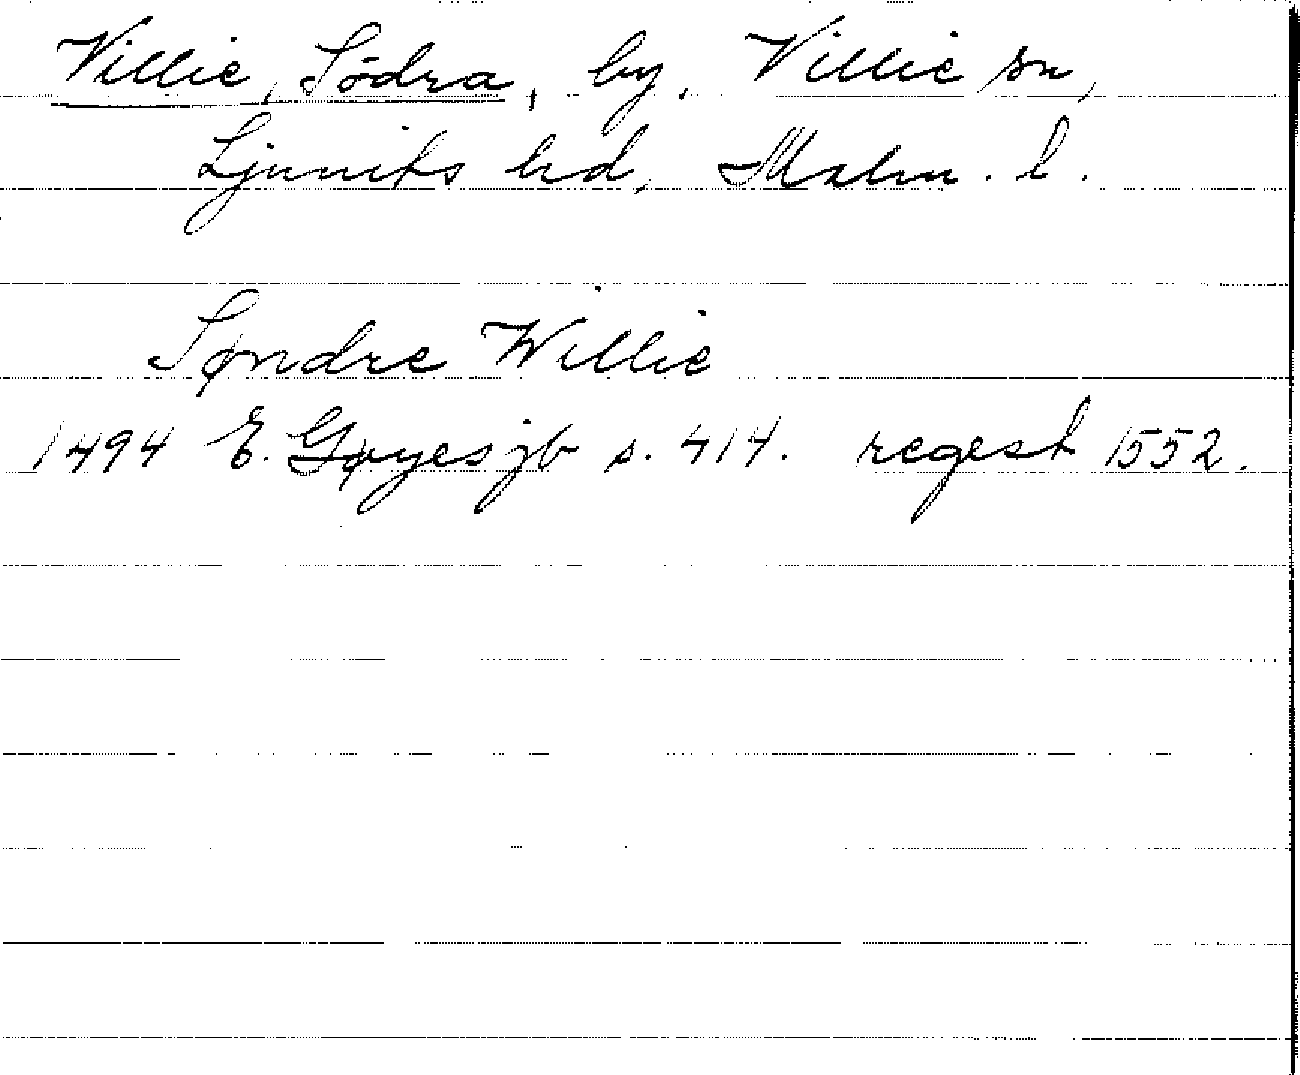 Villie, Södra, by, Villie sn,
Ljunits hd, Malm. l.
Søndre Willie
1494 E. Gøyes jb s. 414. regest 1552.